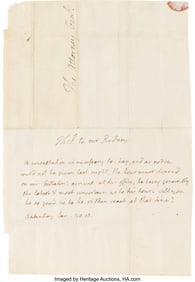 The Attorney Genl.
Th:J. to mr Rodney
A consultation is necessary to-day, and as notice
could not be given last night, the hour must depend
on mr Gallatin's arrival at his office, he being generally
the latest & most uncertain as to his hour. will you
be so good as to be within reach at that time?
Saturday Jan.
Imaged by Heritage Auctions, HA.com